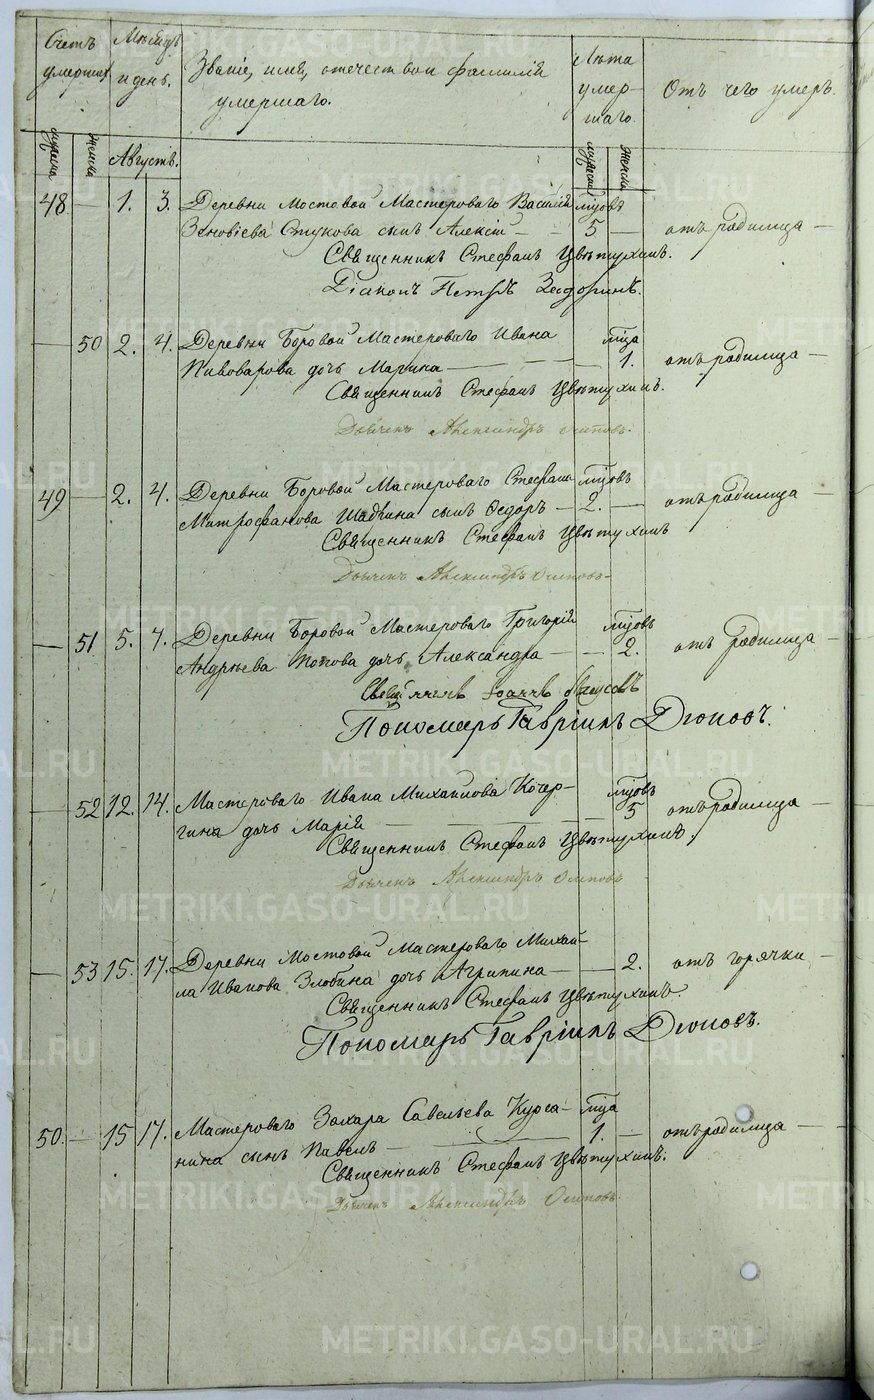 Счетъ умершихъ
Мѣсяцъ и день.
Званіе, имя, отечество и фамилія
умершаго.
Лѣта умер-
шаго.
Отъ чего умеръ.
мужеска
женска
Августъ.
мужеска
женска
48 — 1. 3. Деревни Мостовой Мастероваго Василія мцовъ
Зеновіева Стукова сынъ Алексій — 5 — отъ родимца —
Священникъ Стефанъ Цвѣтухинъ.
Діаконъ Петръ Задоринъ.
— 50 2. 4. Деревни Боровой Мастероваго Ивана мца
Пивоварова дочь Марина — — 1. отъ родимца —
Священникъ Стефанъ Цвѣтухинъ.
Дьячекъ Александръ Осиповъ.
49 — 2. 4. Деревни Боровой Мастероваго Стефана мцовъ
Митрофанова Шадрина сынъ Ѳедоръ — 2. — отъ родимца —
Священникъ Стефанъ Цвѣтухинъ
Дьячекъ Александръ Осиповъ
— 51 5. 7. Деревни Боровой Мастероваго Григорія мцовъ
Андрѣева Попова дочь Александра — — 2. отъ родимца —
Священникъ Іоаннъ
Пономарь Гавріилъ Діоновъ.
— 52 12. 14. Мастероваго Ивана Михайлова Кочер- мцовъ
гина дочь Марія — — 5 отъ родимца —
Священникъ Стефанъ Цвѣтухинъ.
Дьячекъ Александръ Осиповъ
— 53 15. 17. Деревни Мостовой Мастероваго Михай-
ла Иванова Злобина дочь Агрипина — — 2. отъ горячки —
Священникъ Стефанъ Цвѣтухинъ.
Пономарь Гавріилъ Діоновъ.
50. — 15 17. Мастероваго Захара Савельева Курга- мца
нина сынъ Павелъ — 1. — отъ родимца —
Священникъ Стефанъ Цвѣтухинъ.
Дьячекъ Александръ Осиповъ.
METRIKI.GASO-URAL.RU